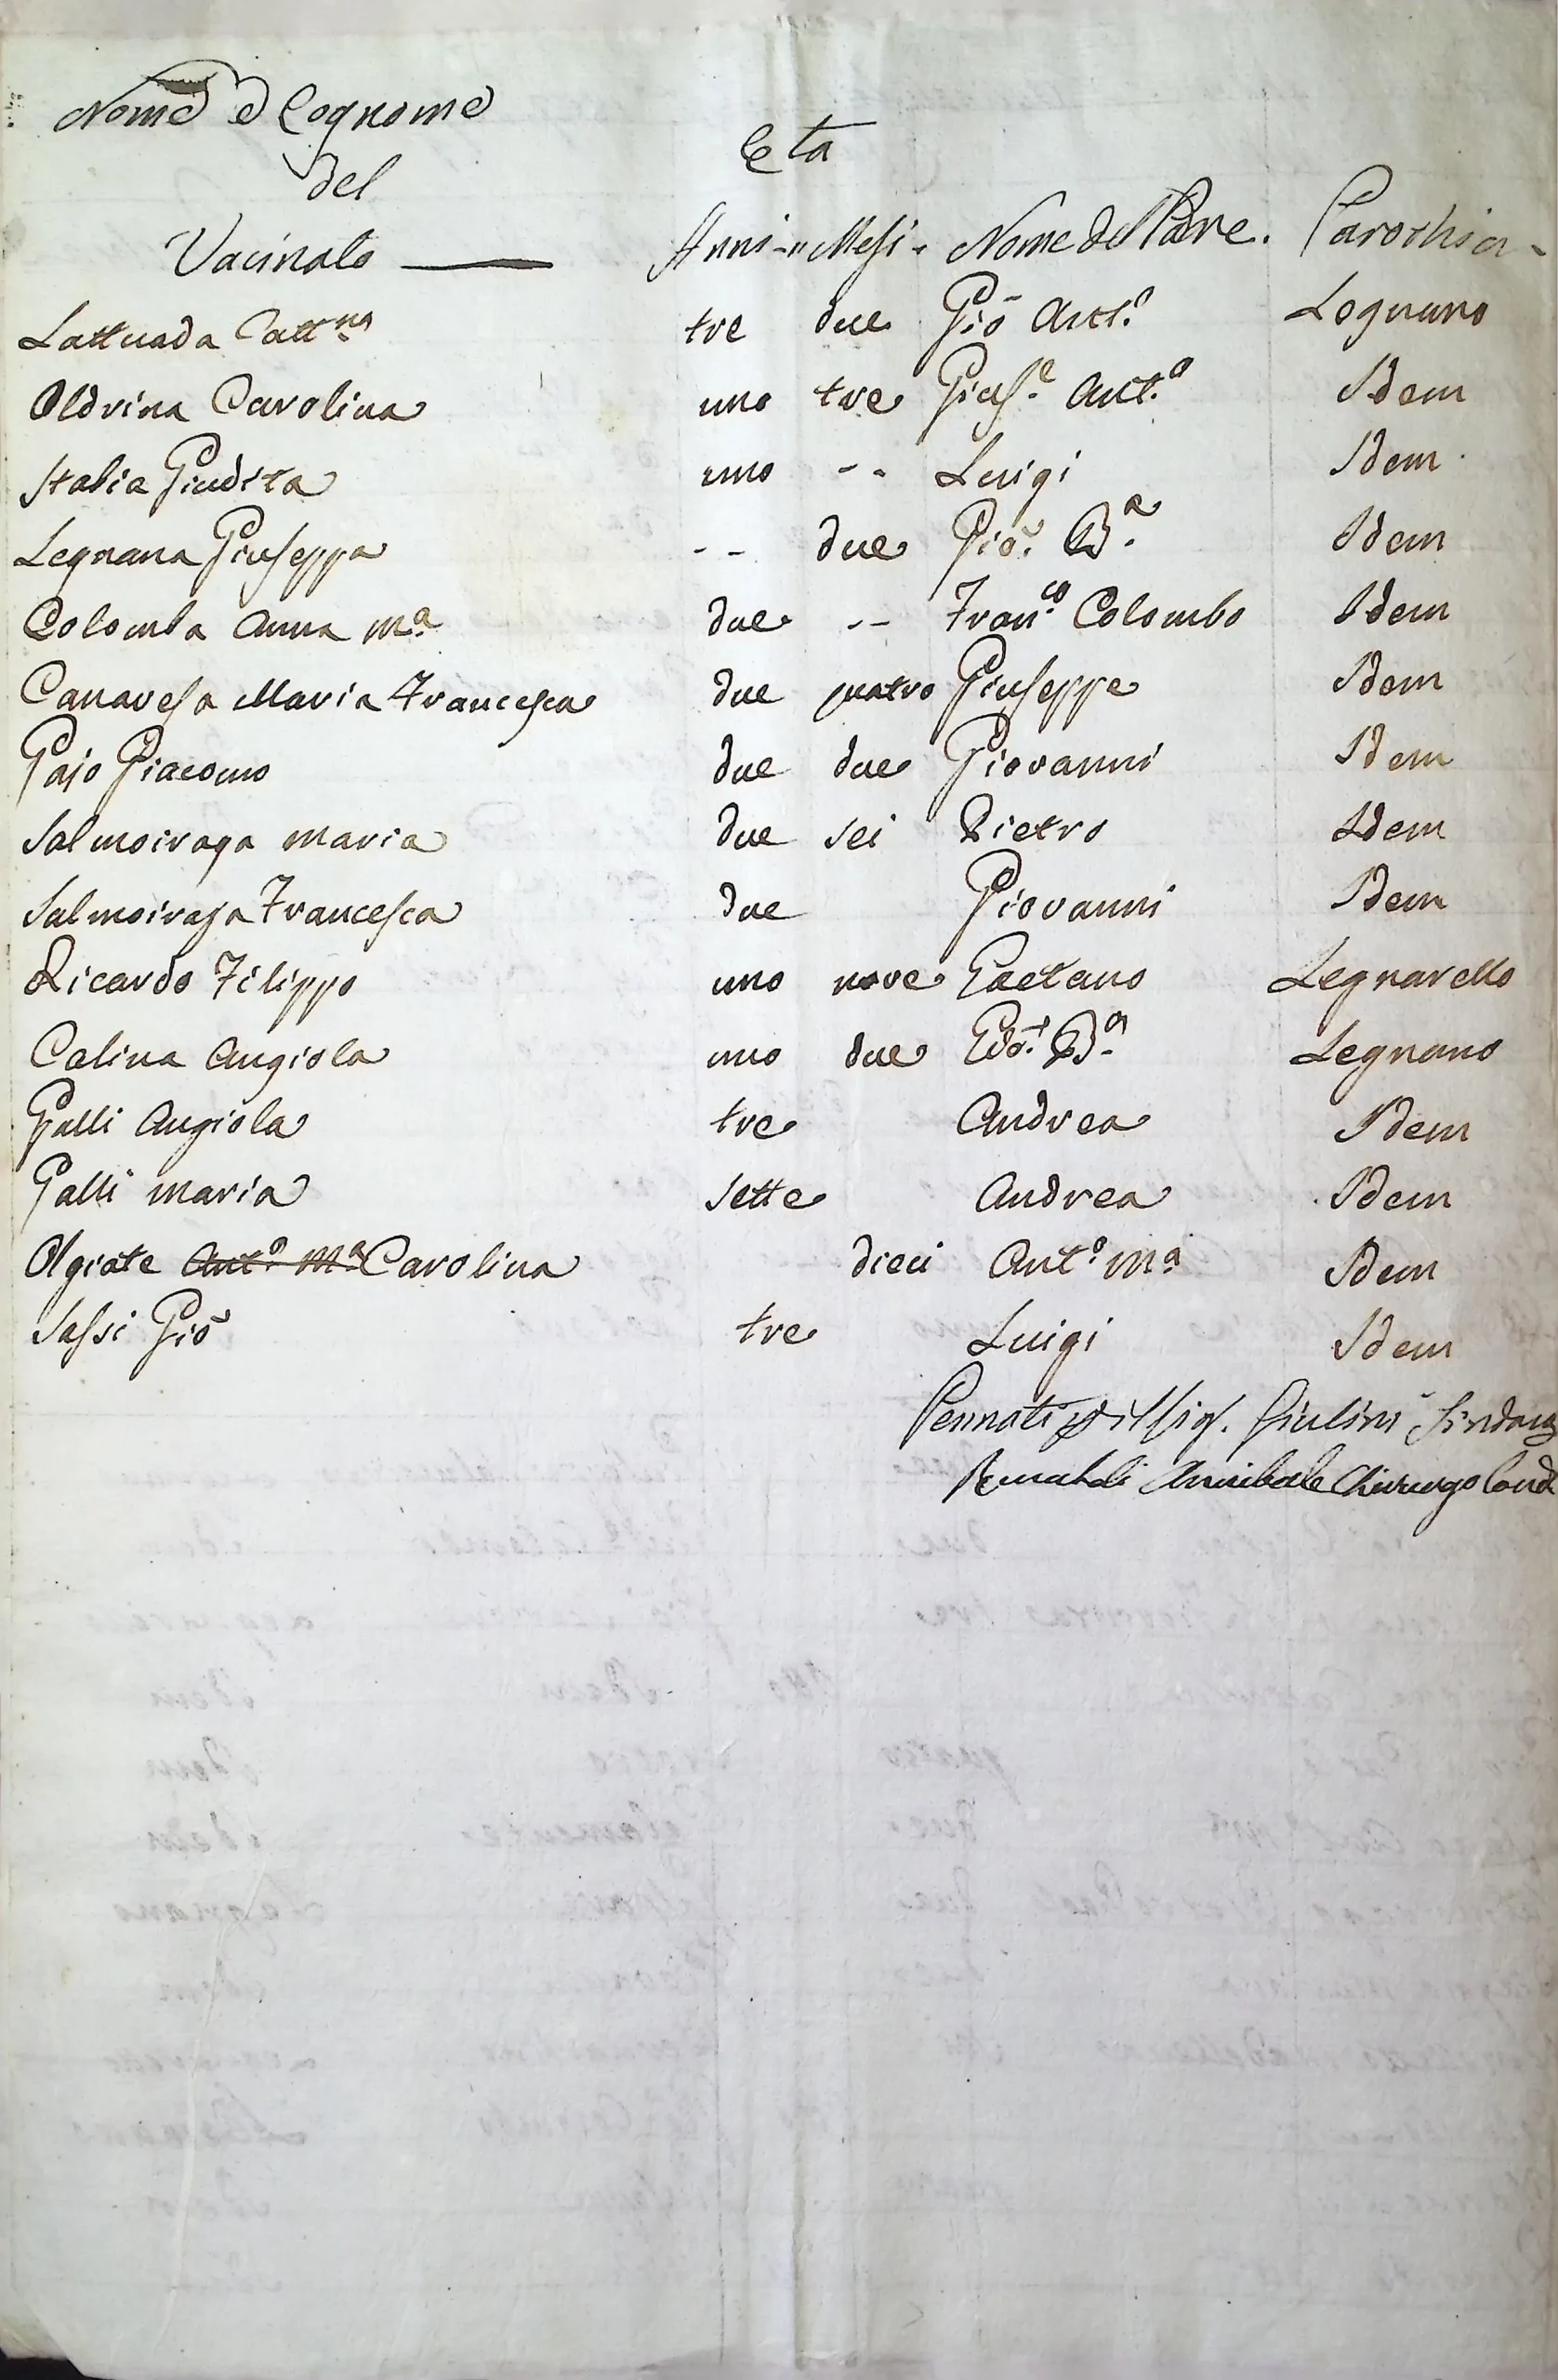 Nome e Cognome
del
Vacinato
Eta
Anni - Mesi - Nome del Padre. Parochia -
Lattuada Catt.na tre due Gio Ant.o Legnano
Oldrina Carolina uno tre Gius.e Ant.o Idem
Italia Giudita uno - - Luigi Idem
Legnana Giuseppa - - due Gio. B.a Idem
Colomba Anna M.a due - - Fran.co Colombo Idem
Canavesa Maria Francesca due quatro Giuseppe Idem
Pajo Giacomo due due Giovanni Idem
Salmoiraga Maria due sei Pietro Idem
Salmoiraga Francesca due Giovanni Idem
Ricardo Filippo uno nove Gaetano Legnarello
Calina Angiola uno due B.a Legnano
Galli Angiola tre Andrea Idem
Galli Maria sette Andrea Idem
Olgiate Ant.o M.a Carolina dieci Ant.o M.a Idem
Sassi Gio tre Luigi Idem
Pennati Giulini Sindaco
Annibale Chirurgo Cond